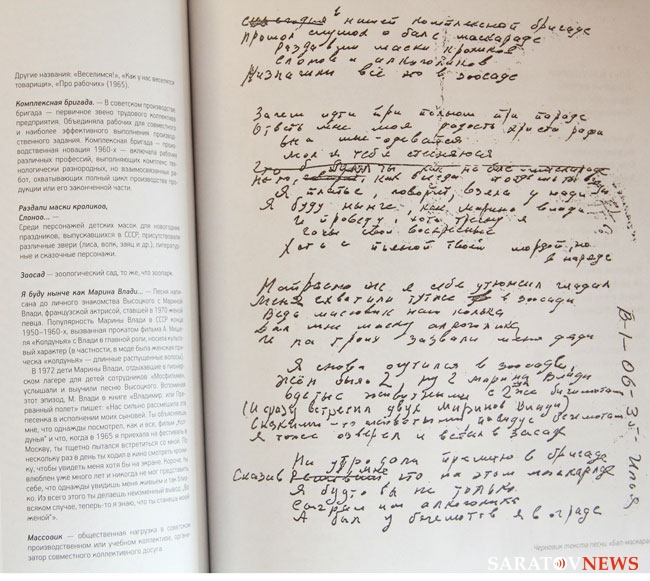 Другие названия: «Веселимся!», «Как у нас веселятся
товарищи», «Про рабочих» (1965).
Комплексная бригада. — В советском производстве
бригада — первичное звено трудового коллектива
предприятия. Объединяла рабочих для совместного
и наиболее эффективного выполнения производ-
ственного задания. Комплексная бригада — произ-
водственная новация 1960-х — включала рабочих
различных профессий, выполняющих комплекс тех-
нологически разнородных, но взаимосвязанных ра-
бот, охватывающих полный цикл производства про-
дукции или его законченной части.
Раздали маски кроликов,
Слонов... —
Среди персонажей детских масок для новогодних
праздников, выпускавшихся в СССР, присутствовали
различные звери (лиса, волк, заяц и др.), литератур-
ные и сказочные персонажи.
Зоосад — зоологический сад, то же, что зоопарк.
Я буду нынче как Марина Влади... — Песня напи-
сана до личного знакомства Высоцкого с Мариной
Влади, французской актрисой, ставшей в 1970 женой
певца. Популярность Марины Влади в СССР в конце
1950–1960-х, вызванная прокатом фильма А. Мише-
ля «Колдунья» с Влади в главной роли, носила культо-
вый характер (в частности, в моде была женская при-
ческа «колдунья» — длинные распущенные волосы).
В 1972 дети Марины Влади, отдыхая в пионер-
ском лагере для детей сотрудников «Мосфильма»,
услышали и выучили песню Высоцкого. Вспоминая
этот эпизод, М. Влади в книге «Владимир, или Пре-
рванный полет» пишет: «Нас сильно рассмешила эта
песенка в исполнении моих сыновей. Ты объясняешь
мне, что однажды посмотрел, как и все, фильм „Кол-
дунья" и что, когда в 1965 я приехала на фестиваль в
Москву, ты тщетно пытался встретиться со мной. По
нескольку раз в день ты ходил в кино смотреть хрони-
ку, чтобы увидеть меня хотя бы на экране. Короче, ты
влюблен уже много лет и никогда не мог представить
себе, что однажды увидишь меня живьем и так близ-
ко. Из всего этого ты делаешь неизменный вывод: „Во
всяком случае, теперь-то я знаю, что ты станешь моей
женой"».
Массовик — общественная нагрузка в советском
производственном или учебном коллективе, органи-
затор совместного коллективного досуга.
сегодня в нашей комплексной бригаде
Прошел слушок о бале маскараде
Раздавали маски кроликов
Слонов и алкоголиков
Назначили всё но в зоосаде
Зачем идти при полном при параде
Ответь мне моя радость христа ради
Она мне - одевайся
Мол я тебя стесняюся
Я платье, говорит, взяла у Нади
Я буду нынче как Марина Влади
И проведу, хоть тресну я
Часы свои воскресные
Хоть с пьяной твоей мордой, но
в наряде
Напрасно же я себе утюжил гладил
Меня схватили тут же в зоосаде
Ведь массовик наш Колька
Дал мне маску алкоголика
И на троих зазвали меня дяди
Я снова очутился в зоосаде
(И сразу встретил двух Маринов Влади)
Я тоже озверел и встал в засаде
На утро дали премию в бригаде
Сказав мне что на этом маскараде
Я будто бы не только
Сыграл им алкоголика
А был у бегемотов я в ограде
Черновик текста песни «Бал-маскарад»
SARATOVNEWS